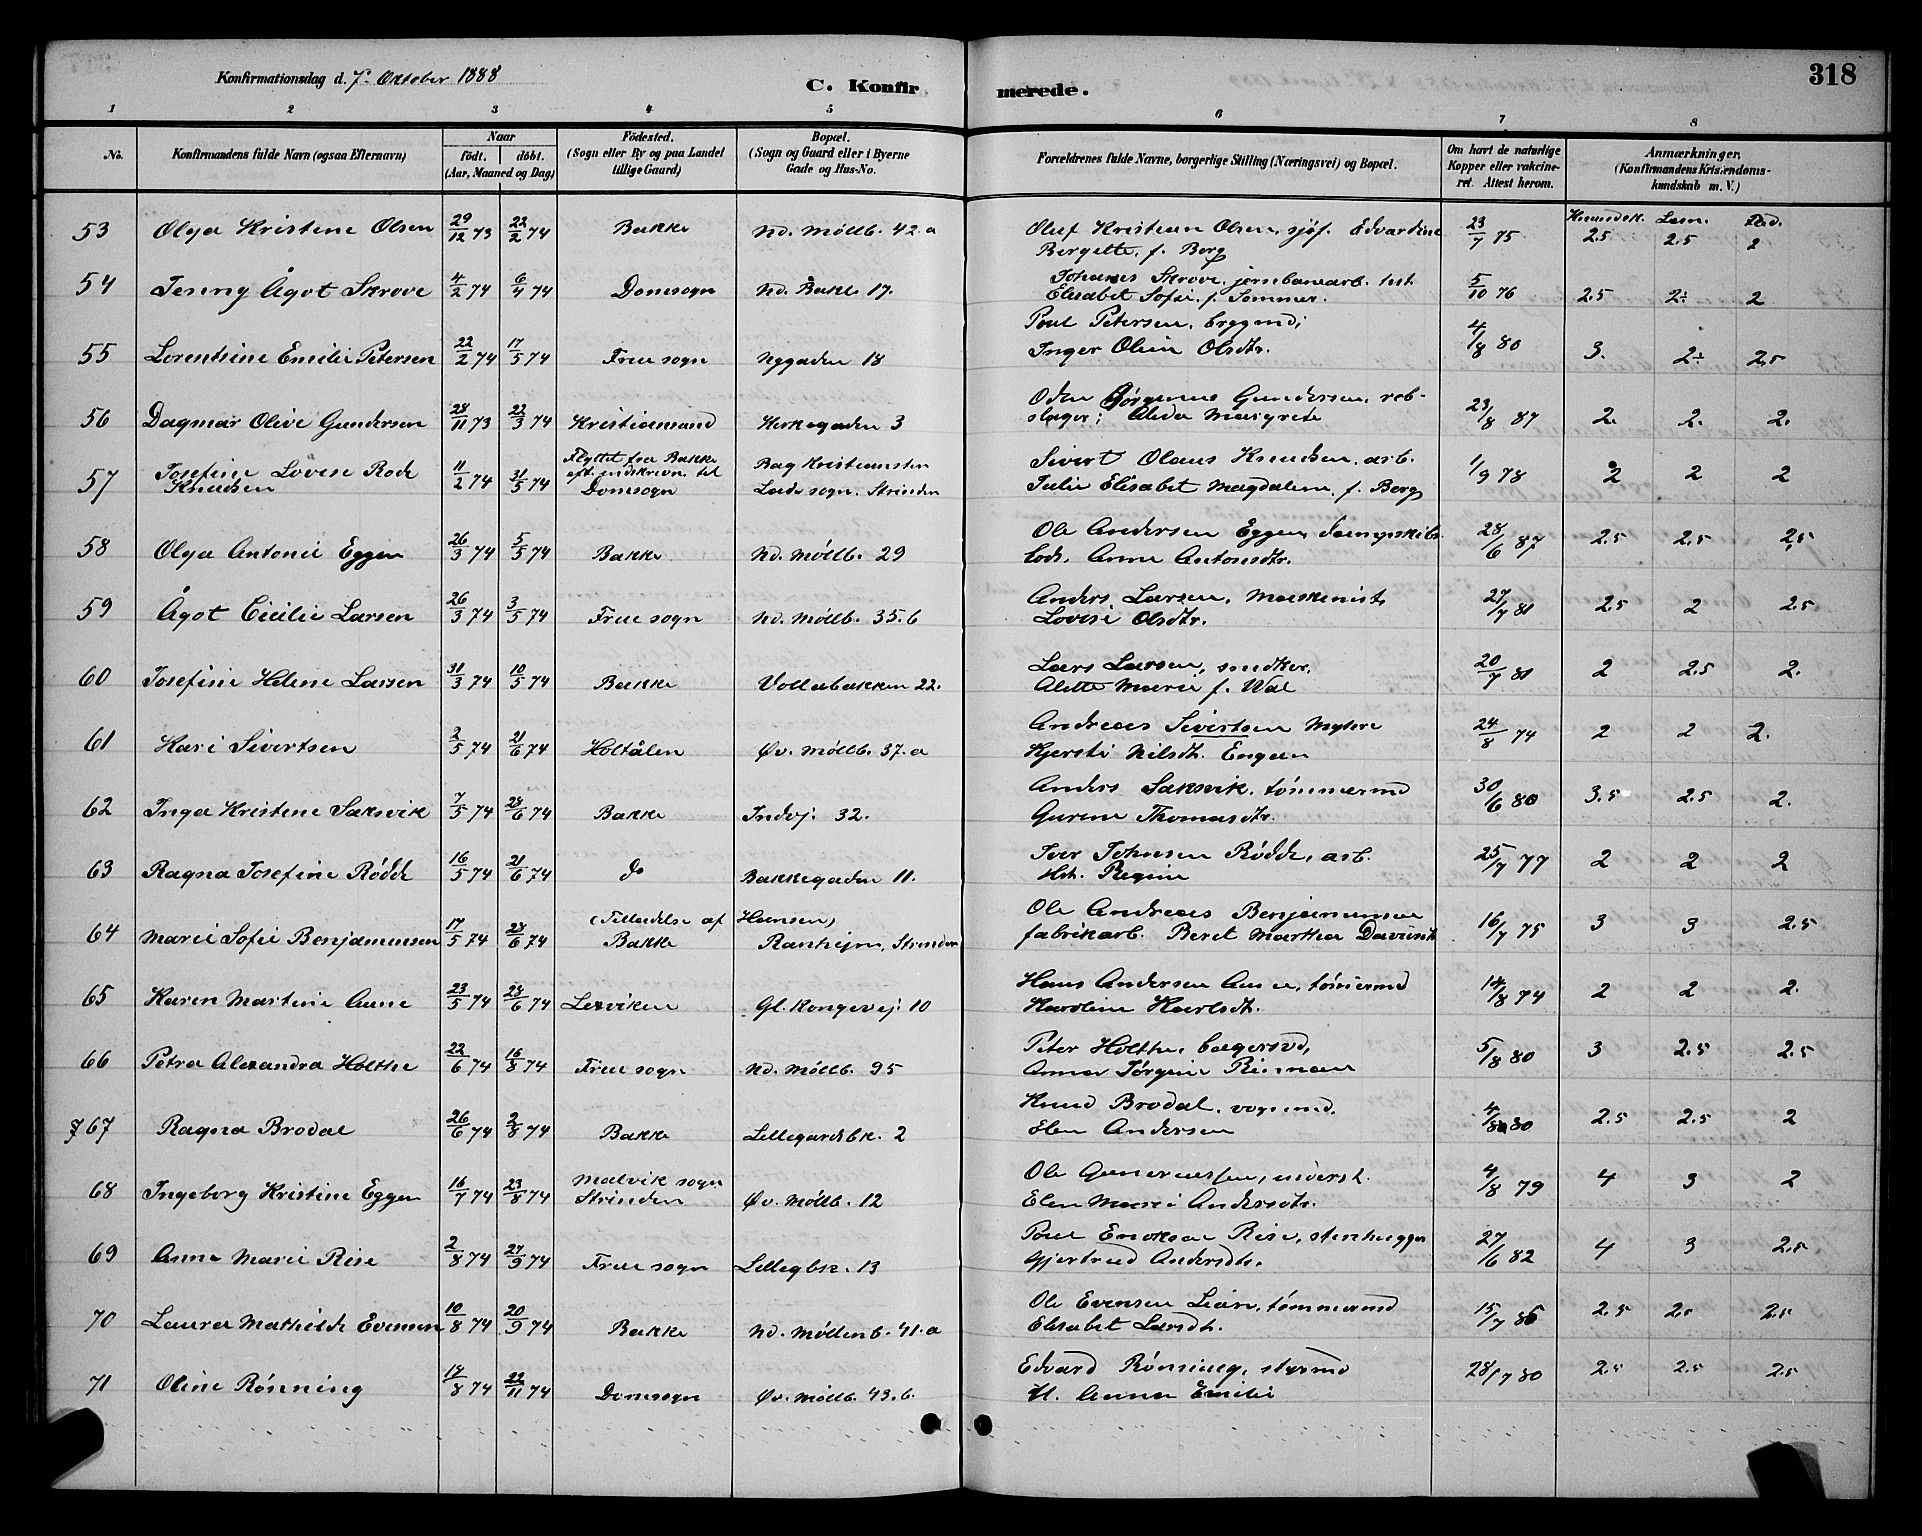 Konfirmationsdag d. 7de Oktober 1888
C. Konfirmerede.
318
1 2 3 4 5 6 7 8
No.
Konfirmandens fulde Navn (ogsaa Efternavn)
Naar
födt. döbt.
(Aar, Maaned og Dag)
Födested.
(Sogn eller By og paa Landet
tillige Gaard)
Bopæl.
(Sogn og Gaard eller i Byerne
Gade og Hus-No.
Forældrenes fulde Navne, borgerlige Stilling (Næringsvei) og Bopæl.
Om havt de naturlige
Kopper eller vakcine-
ret. Attest herom.
Anmærkninger,
(Konfirmandens Kristendoms-
kundskab m. V.)
Kundsk. Læsn. Flid.
53 Olga Kristine Olsen 29/12 73 22/2 74 Bakke Nd. Møllb. 42.a Oluf Kristian Olsen, sjøf. Edvardine 23/7 75 2.5 2.5 2
Bergette, f. Berg
54 Jenny Ågot Skrove 4/2 74 6/4 74 Domsogn Nd. Bakl. 17. Johanes Skrove, jernbanearb. 5/10 76 2.5 2÷ 2
Elisabet Sofie, f. Sommer.
55 Lorentsine Emilie Petersen 22/2 74 17/5 74 Frue sogn Nygaden 18 Poul Petersen, brygmd; 4/8 80 3. 2÷ 2.5
Inger Olin Olsdtr.
56 Dagmar Olive Gundersen 28/11 73 22/3 74 Kristiansund Kirkegaden 3 Oden Jørgenus Gundersen, reb- 23/8 87 2. 2. 2.
slager; Alida Margrete
57 Josefine Lovise Rode Knudsen 11/2 74 31/5 74 Flyttet fra Bakke eft. indskrevn. til Domsogn Bag Kristiansten Lade sogn. Strinden Sivert Olaus Knudsen, arb. 1/9 78 2 2 2
Julie Elisabet Magdalene, f. Berg
58 Olga Antonie Eggen 26/3 74 5/5 74 Bakke Nd. Møllb. 29 Ole Andersen Eggen, dampskibs 28/6 87 2.5 2.5 2.5
lods. Anne Antonsdtr.
59 Ågot Cicilie Larsen 26/3 74 3/5 74 Frue sogn Nd. Møllb. 35.b Anders Larsen, Maskinist, 27/7 81 2.5 2 2.5
Lovise Olsdtr.
60 Josefine Helene Larsen 31/3 74 10/5 74 Bakke Vollabakken 22. Lars Larsen, snedker, 20/7 81 2 2.5 2.
Alette Marie f. Wal
61 Kari Sivertsen 2/5 74 21/6 74 Holtålen Øv. Møllb. 37.a Andreas Sivertsen Mylere 24/8 74 2 2 2.
Kjersti Nilsdt. Engan
62 Inga Kristine Saksvik 7/5 74 28/6 74 Bakke Indvj. 32. Anders Saksvik, tømmermd 30/6 80 3.5 2.5 2.
Gurine Thomasdtr.
63 Ragna Josefine Rødde 16/5 74 21/6 74 do Bakkegaden 11. Iver Johnsen Rødde, arb. 25/7 77 2 2 2
Hst. Regine
64 Marie Sofie Benjaminsen 17/5 74 28/6 74 (Tilladelse af Hansen) Bakke Ranhejm, Strinden Ole Andreas Benjaminsen 16/7 75 3 3 2.5
fabrikarb. Beret Martha Davidsdt.
65 Karen Martine Aune 23/5 74 28/6 74 Lexviken Gl. Kongevej. 10 Hans Andersen Aune, tømermd 14/8 74 2 2 2.
Karoline Karlsdt.
66 Petra Alexandra Holthe 22/6 74 16/8 74 Frue sogn Nd. Møllb. 95 Peter Holthe, bagersvd, 5/8 80 3 2.5 2.5
Anna Jørgine Riseman
67 Ragna Brodal 26/6 74 2/8 74 Bakke Lillegårdsbk. 2 Knud Brodal, vognmd. 4/8 80 2.5 2.5 2
Elen Andersen
68 Ingeborg Kristine Eggen 16/7 74 23/8 74 Malvik sogn Strinden Øv. Møllb. 12 Ole Gunerussen, underst. 4/8 79 4 3 2
Elen Marie Andersdtr.
69 Anne Marie Rise 2/8 74 27/9 74 Frue sogn Lillegbk. 13 Poul Eriksen Rise, stenhugger 27/6 82 4 3 2.5
Gjertrud Andersdt.
70 Laura Mathilde Evensen 10/8 74 20/9 74 Bakke Nd. Møllenb. 41.a Ole Evensen Lian, tømmermd 15/7 86 2.5 2.5 2.5
Elisabet Larsdt.
71 Oline Rønning 18/8 74 22/11 74 Domsogn Øv. Møllb. 43.b. Edvard Rønning, styrmd 28/7 80 2.5 2.5 2.5
H. Anna Emilie